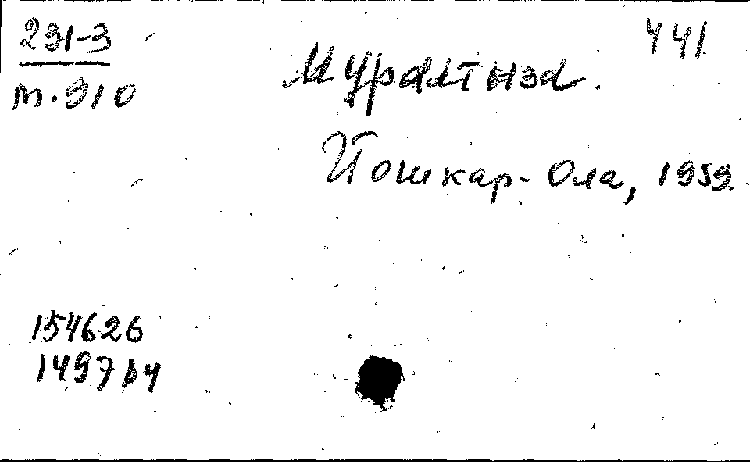 231-3
т.910
441
Муралтыза.
Йошкар-Ола, 1959
154626
149764